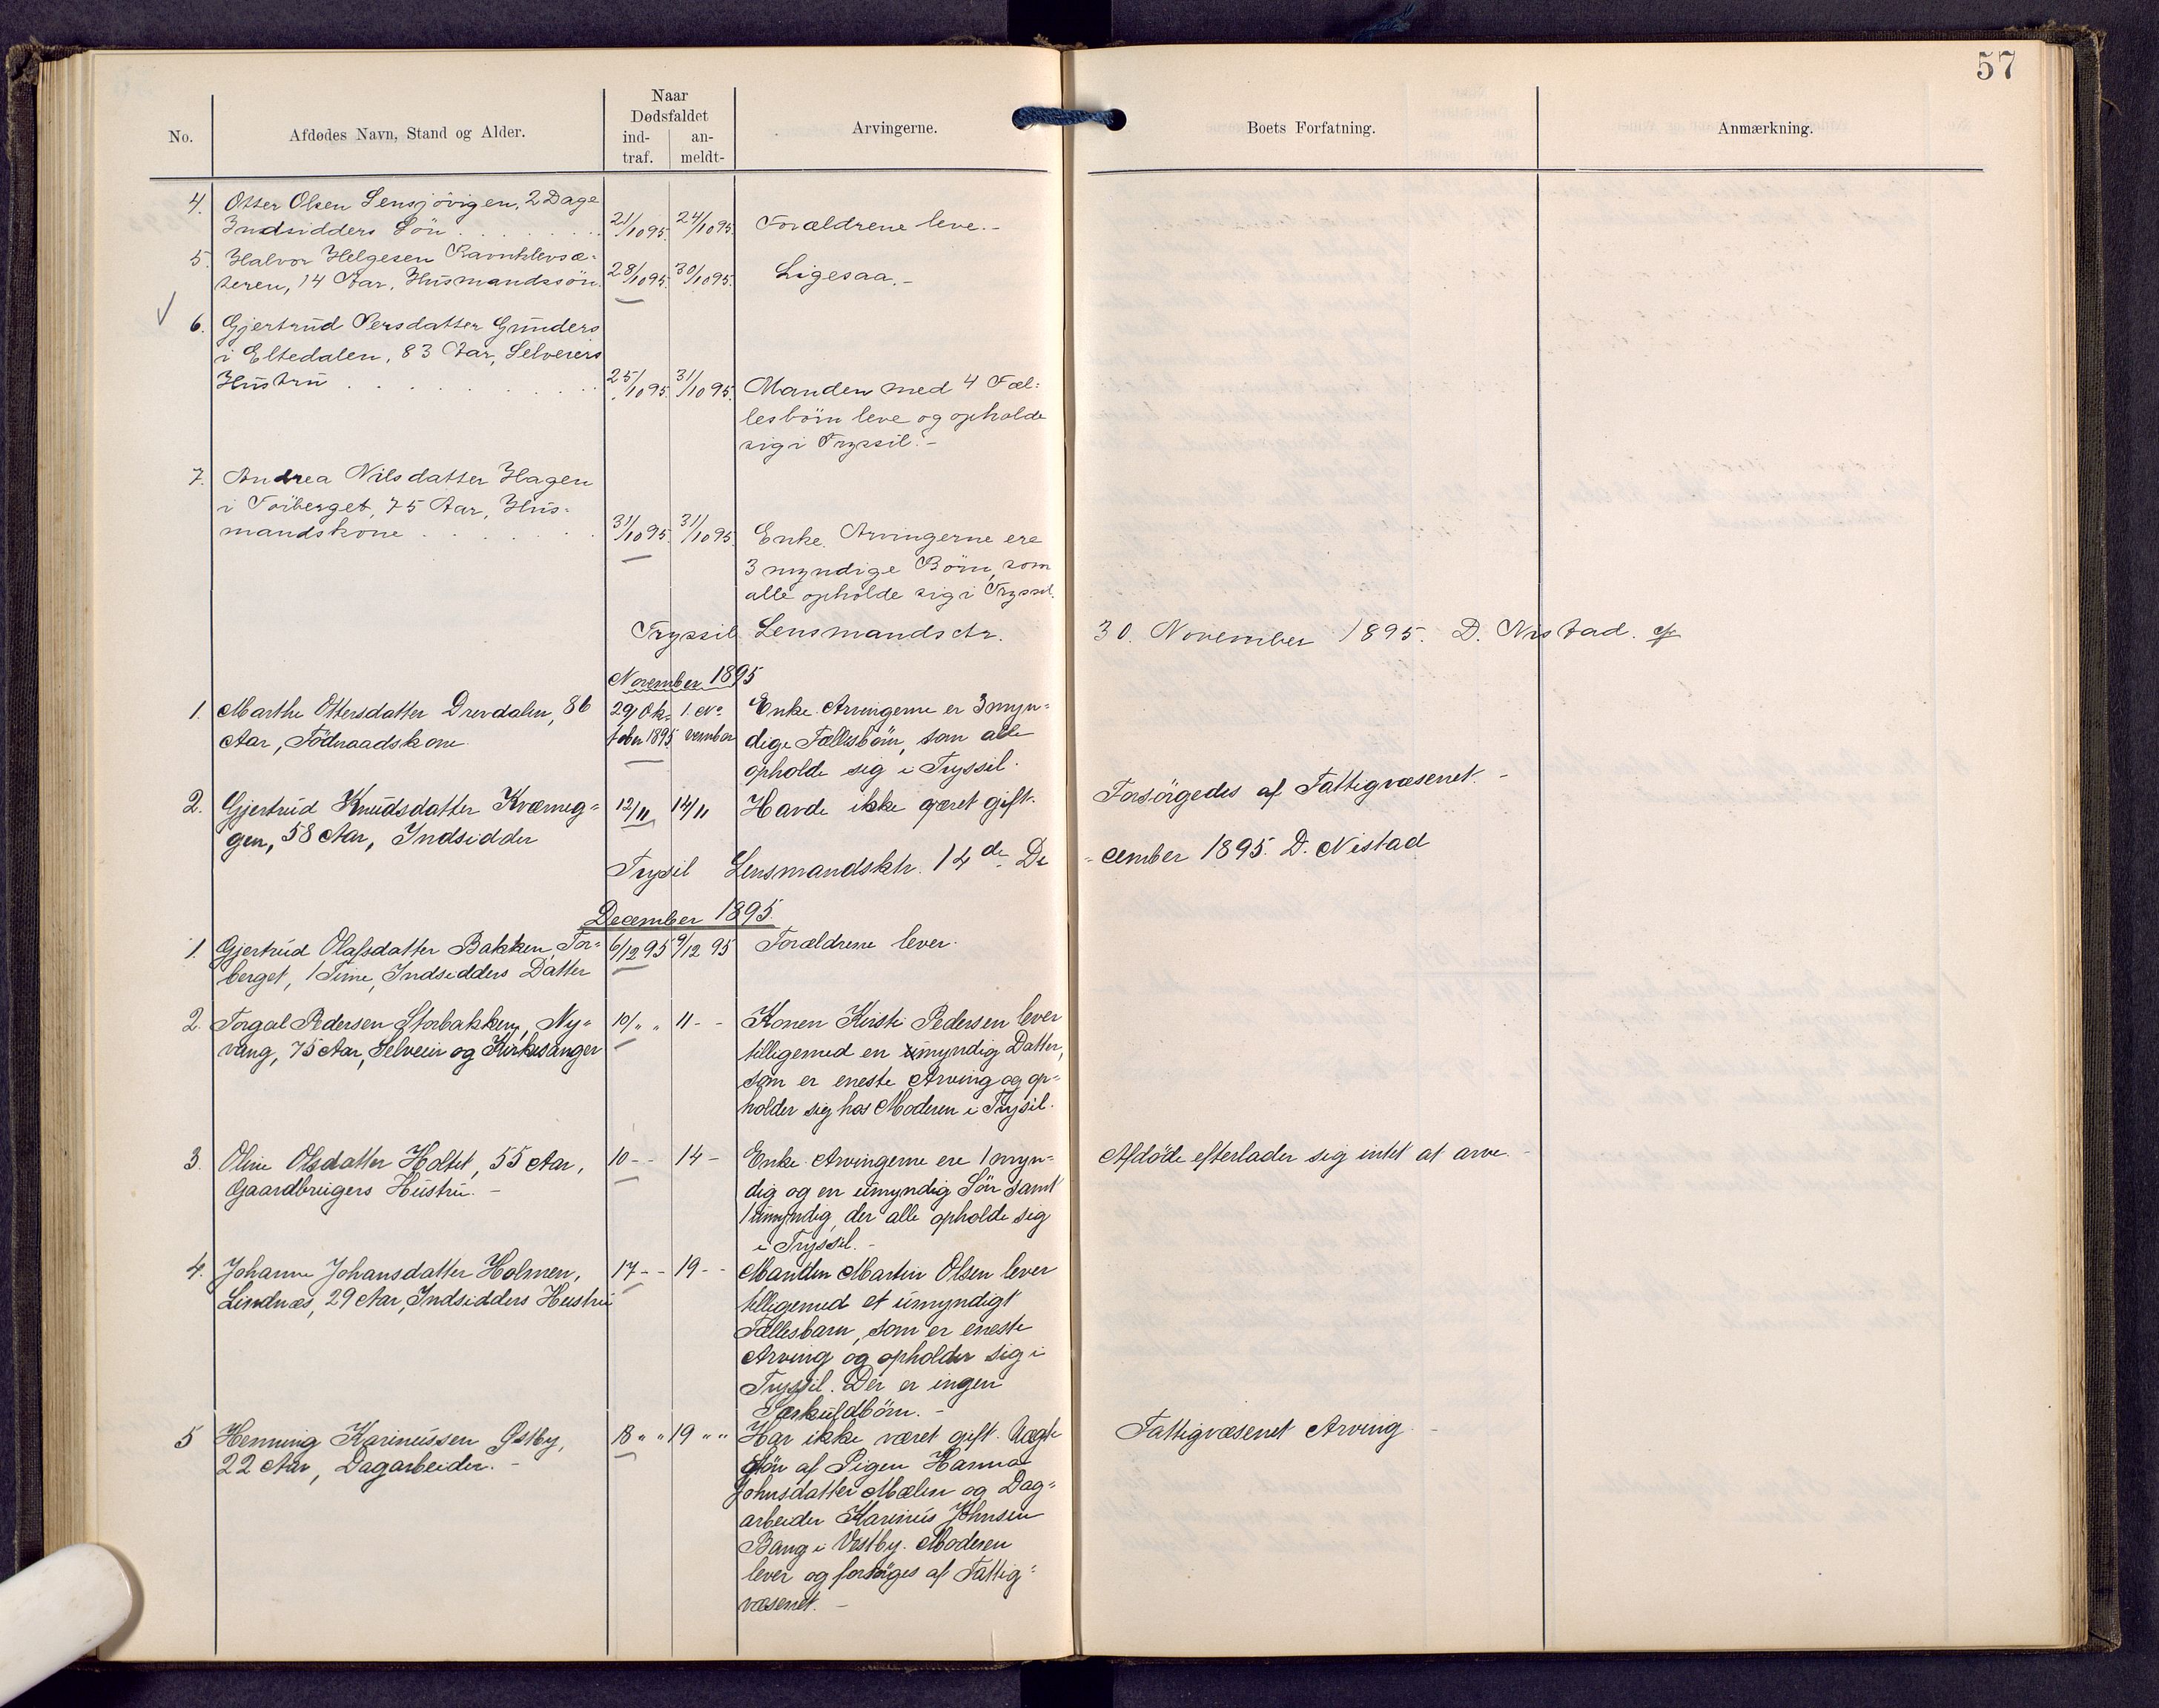 57
No.
Afdødes Navn, Stand og Alder.
Naar
Dødsfaldet
ind-
traf.
an-
meldt-
Arvingerne.
Boets Forfatning.
Anmærkning.
4. Otter Olsen Sensjövigen, 2 Dage
Indsidders Sön 21/10 95. 24/10 95. Forældrene leve.-
5. Halvor Helgesen Ravnklevsæ-
teren, 14 Aar, Husmandssön. 28/10 95. 30/10 95. Ligesaa.-
6. Gjertrud Persdatter Grinders
i Eltedalen, 83 Aar, Selveiers
Hustru 25/10 95. 31/10 95. Manden med 4 Fæl-
lesbörn leve og opholde
sig i Tryssil.-
7. Andrea Nilsdatter Hagen
i Törberget, 75 Aar, Hus-
mandskone 31/10 95. 31/10 95. Enke. Arvingerne ere
3 myndige Börn, som
alle opholde sig i Tryssil.
Tryssil Lensmandsctr. 30. November 1895. D. Nistad.
November 1895
1. Marthe Ottersdatter Drevdalen, 86 29 Ok- 1. No- Enke. Arvingerne er 3 myn-
Aar, Födraadskone. tober 1895 vember dige Fællesbörn, som alle
opholde sig i Tryssil.
2. Gjertrud Knudsdatter Kværneg- 12/11 14/11 Havde ikke været gift. Forsörgedes af Fattigvæsenet.-
gen, 58 Aar, Indsidder
Trysil Lensmandsktr. 14de De-cember 1895. D. Nistad
December 1895.
1. Gjertrud Olafsdatter Bakken, Tör- 6/12 95 9/12 95 Forældrene lever.
berget, 1 Time, Indsidders Datter
2. Torgal Pedersen Storbakken, Ny- 10/ " " 11 - - Konen Kirsti Pedersen lever
vang, 75 Aar, Selveier og Kirkesanger tilligemed en umyndig Datter,
som er eneste Arving og op-
holder sig hos Moderen i Trysil.
3. Oline Olsdatter Holtet, 55 Aar, 10 - - 14 - Enke. Arvingerne ere 1 myn- Afdöde efterlader sig intet at arve.
Gaardbrugers Hustru.- dig og en umyndig Sön samt
1 umyndig, der alle opholde sig
i Tryssil.-
4. Johanne Johansdatter Holmen, 17 - - 19 - - Manden Martin Olsen lever
Lindnæs, 29 Aar, Indsidders Hustru tilligemed et umyndigt
Fællesbarn, som er eneste
Arving og opholder sig i
Tryssil. Der er ingen
Særkuldbörn.-
5 Henning Karinussen Østby, 18 " " 19 " " Har ikke været gift. Uægte Fattigvæsenet Arving
22 Aar, Dagarbeider.- Sön af Pigen Hanna
Johnsdatter Mælen og Dag-
arbeider Karinus Johnsen
Bang i Vestby. Moderen
lever og forsörges af Fattig-
væsenet.-